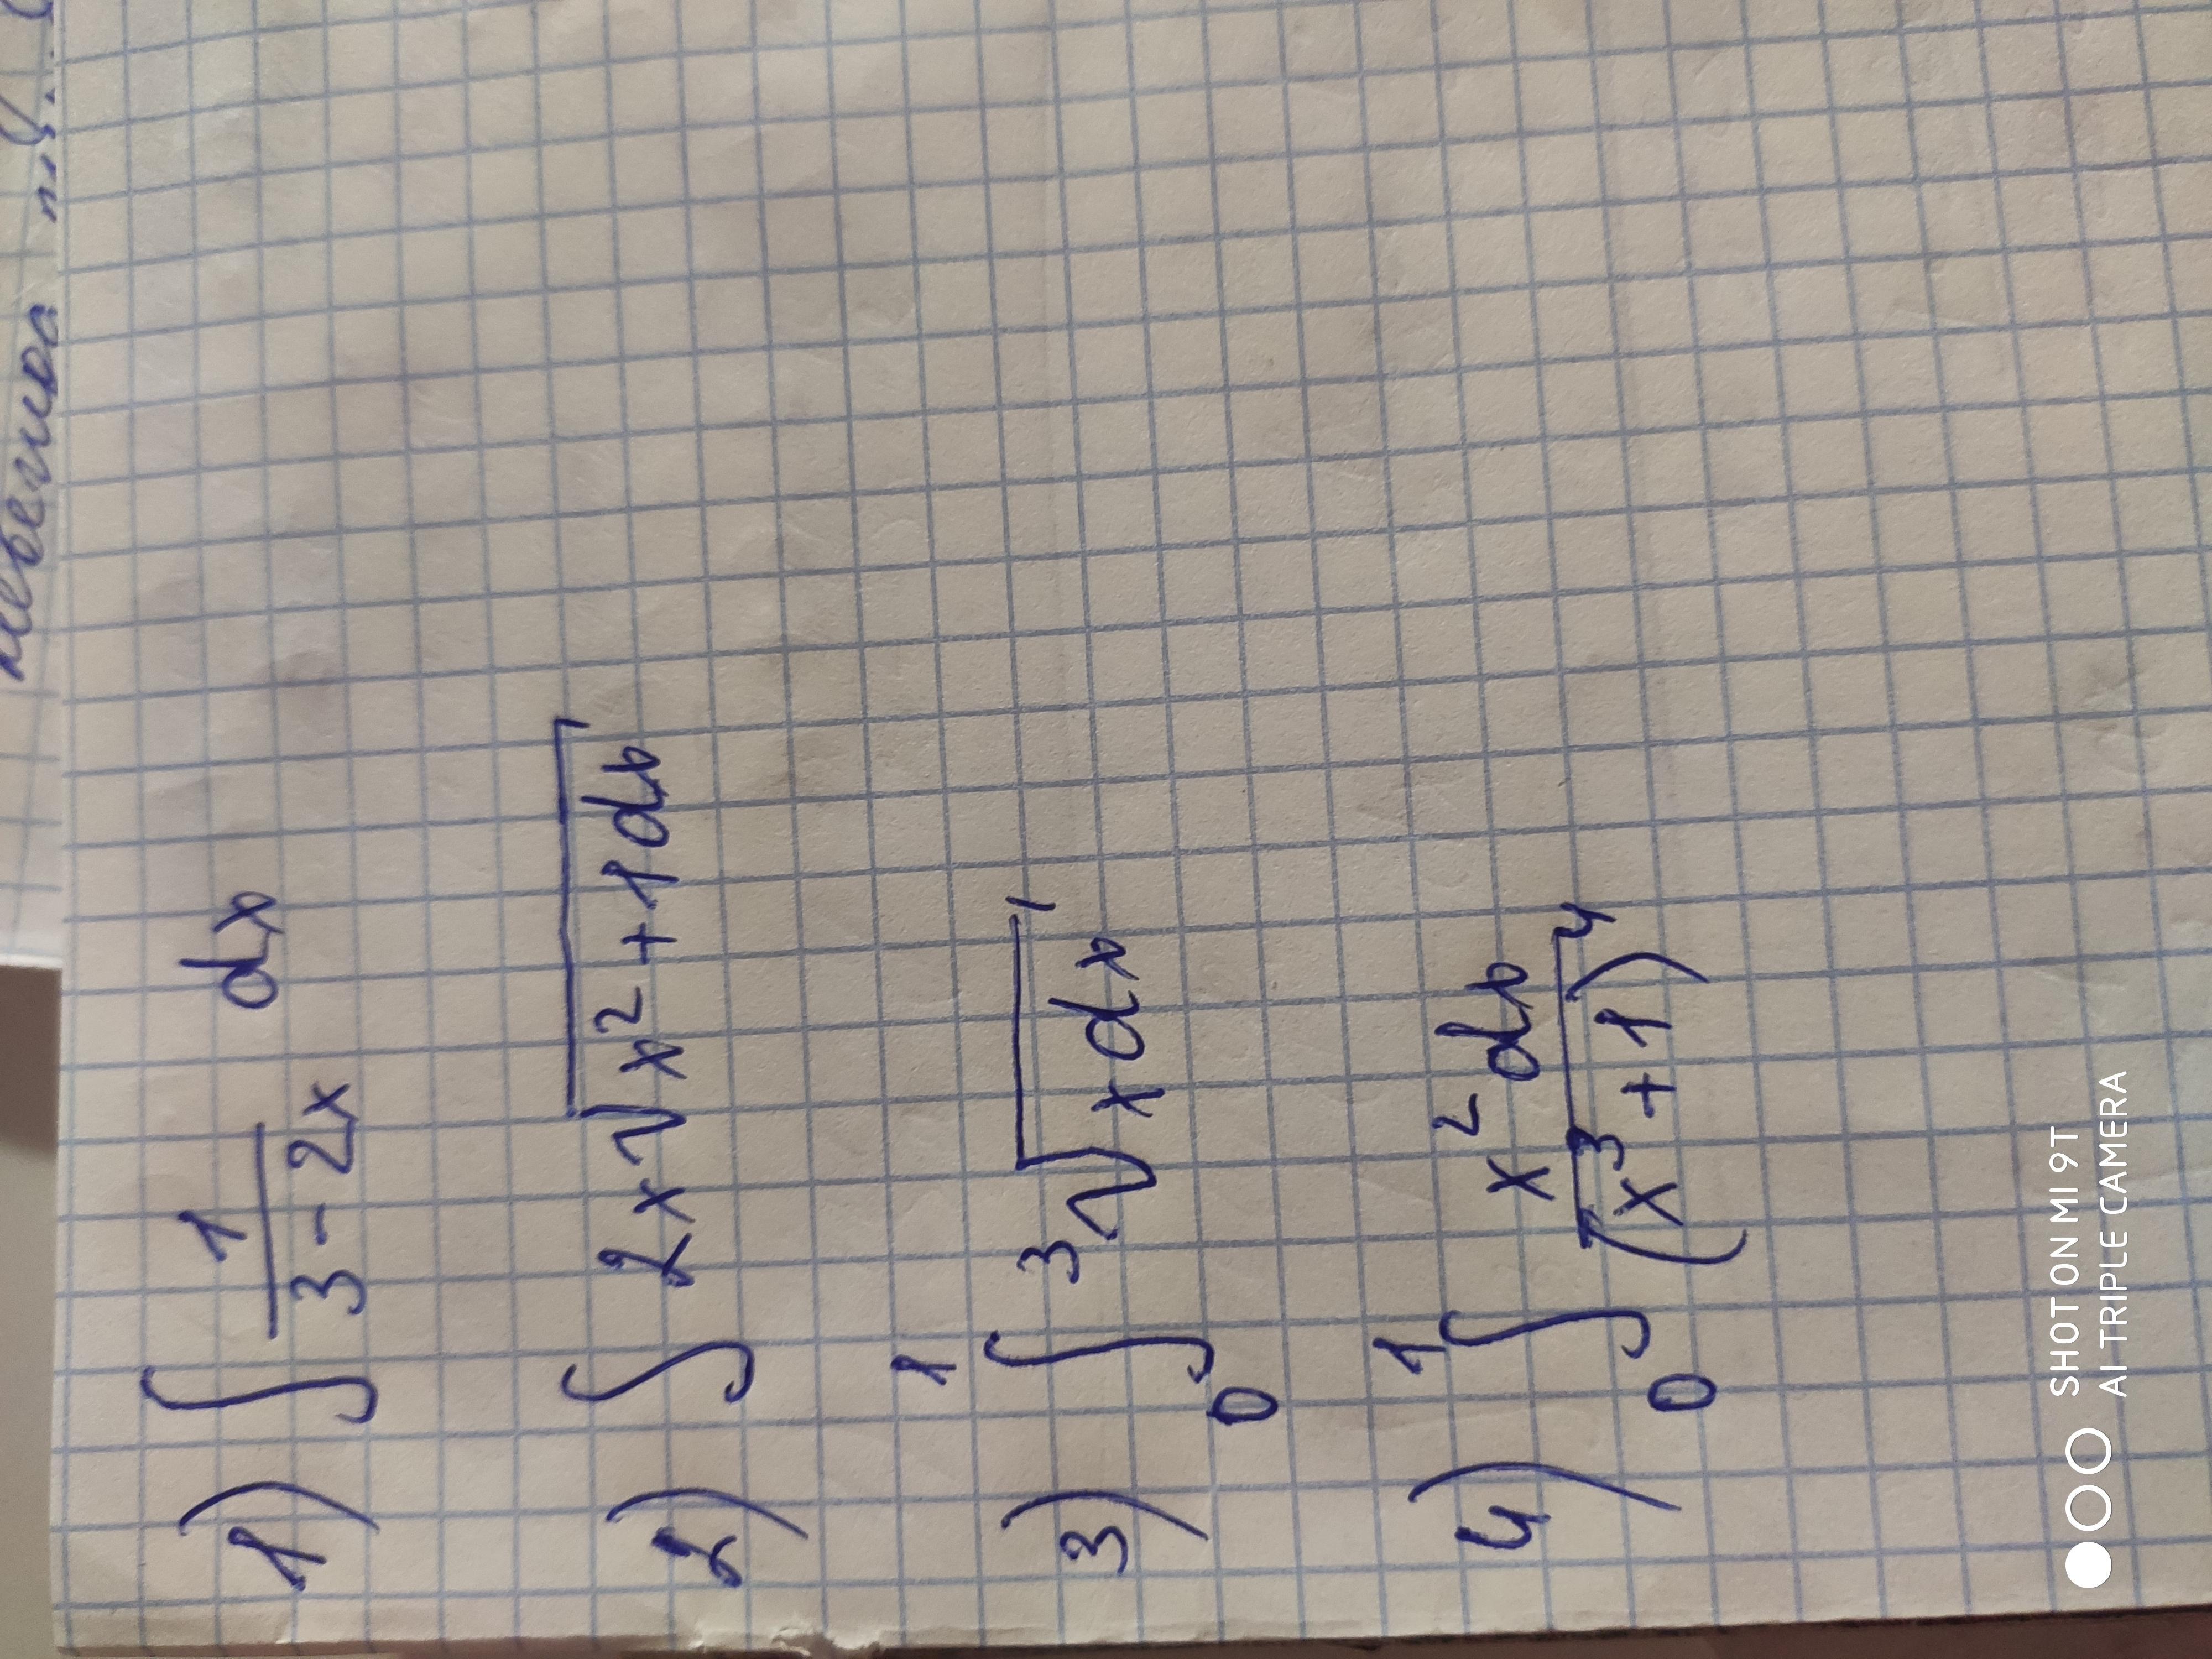 1) ∫ 1/(3-2x) dx
2) ∫ 2x√(x²+1dx)
3) ∫₀¹ ³√(xdx)
4) ∫₀¹ x²dx/(x³+1)⁴
SHOT ON MI 9T
AI TRIPLE CAMERA